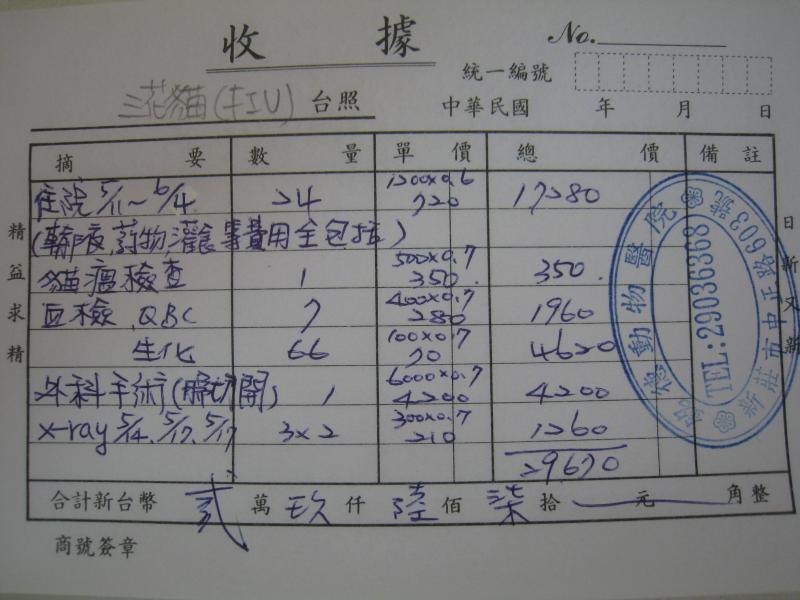 收據
No.
統一編號
三花貓(FIV) 台照
中華民國 年 月 日
摘要 數量 單價 總價 備註
住院 5/11~6/4 24 1200x0.6 720 17280
(輸液,药物,灌食等費用全包括)
貓瘟檢查 1 500x0.7 350. 350.
血檢 QBC 7 400x0.7 280 1960
生化 66 100x0.7 70 4620
外科手術(切開) 1 6000x0.7 4200 4200
x-ray 5/14. 5/17. 5/17 3x2 300x0.7 210 1260
29670
合計新台幣 貳萬玖仟陸佰柒拾元角整
商號簽章
精益求精
日新又新
動物醫院
TEL:29036368
新莊市中正路603號